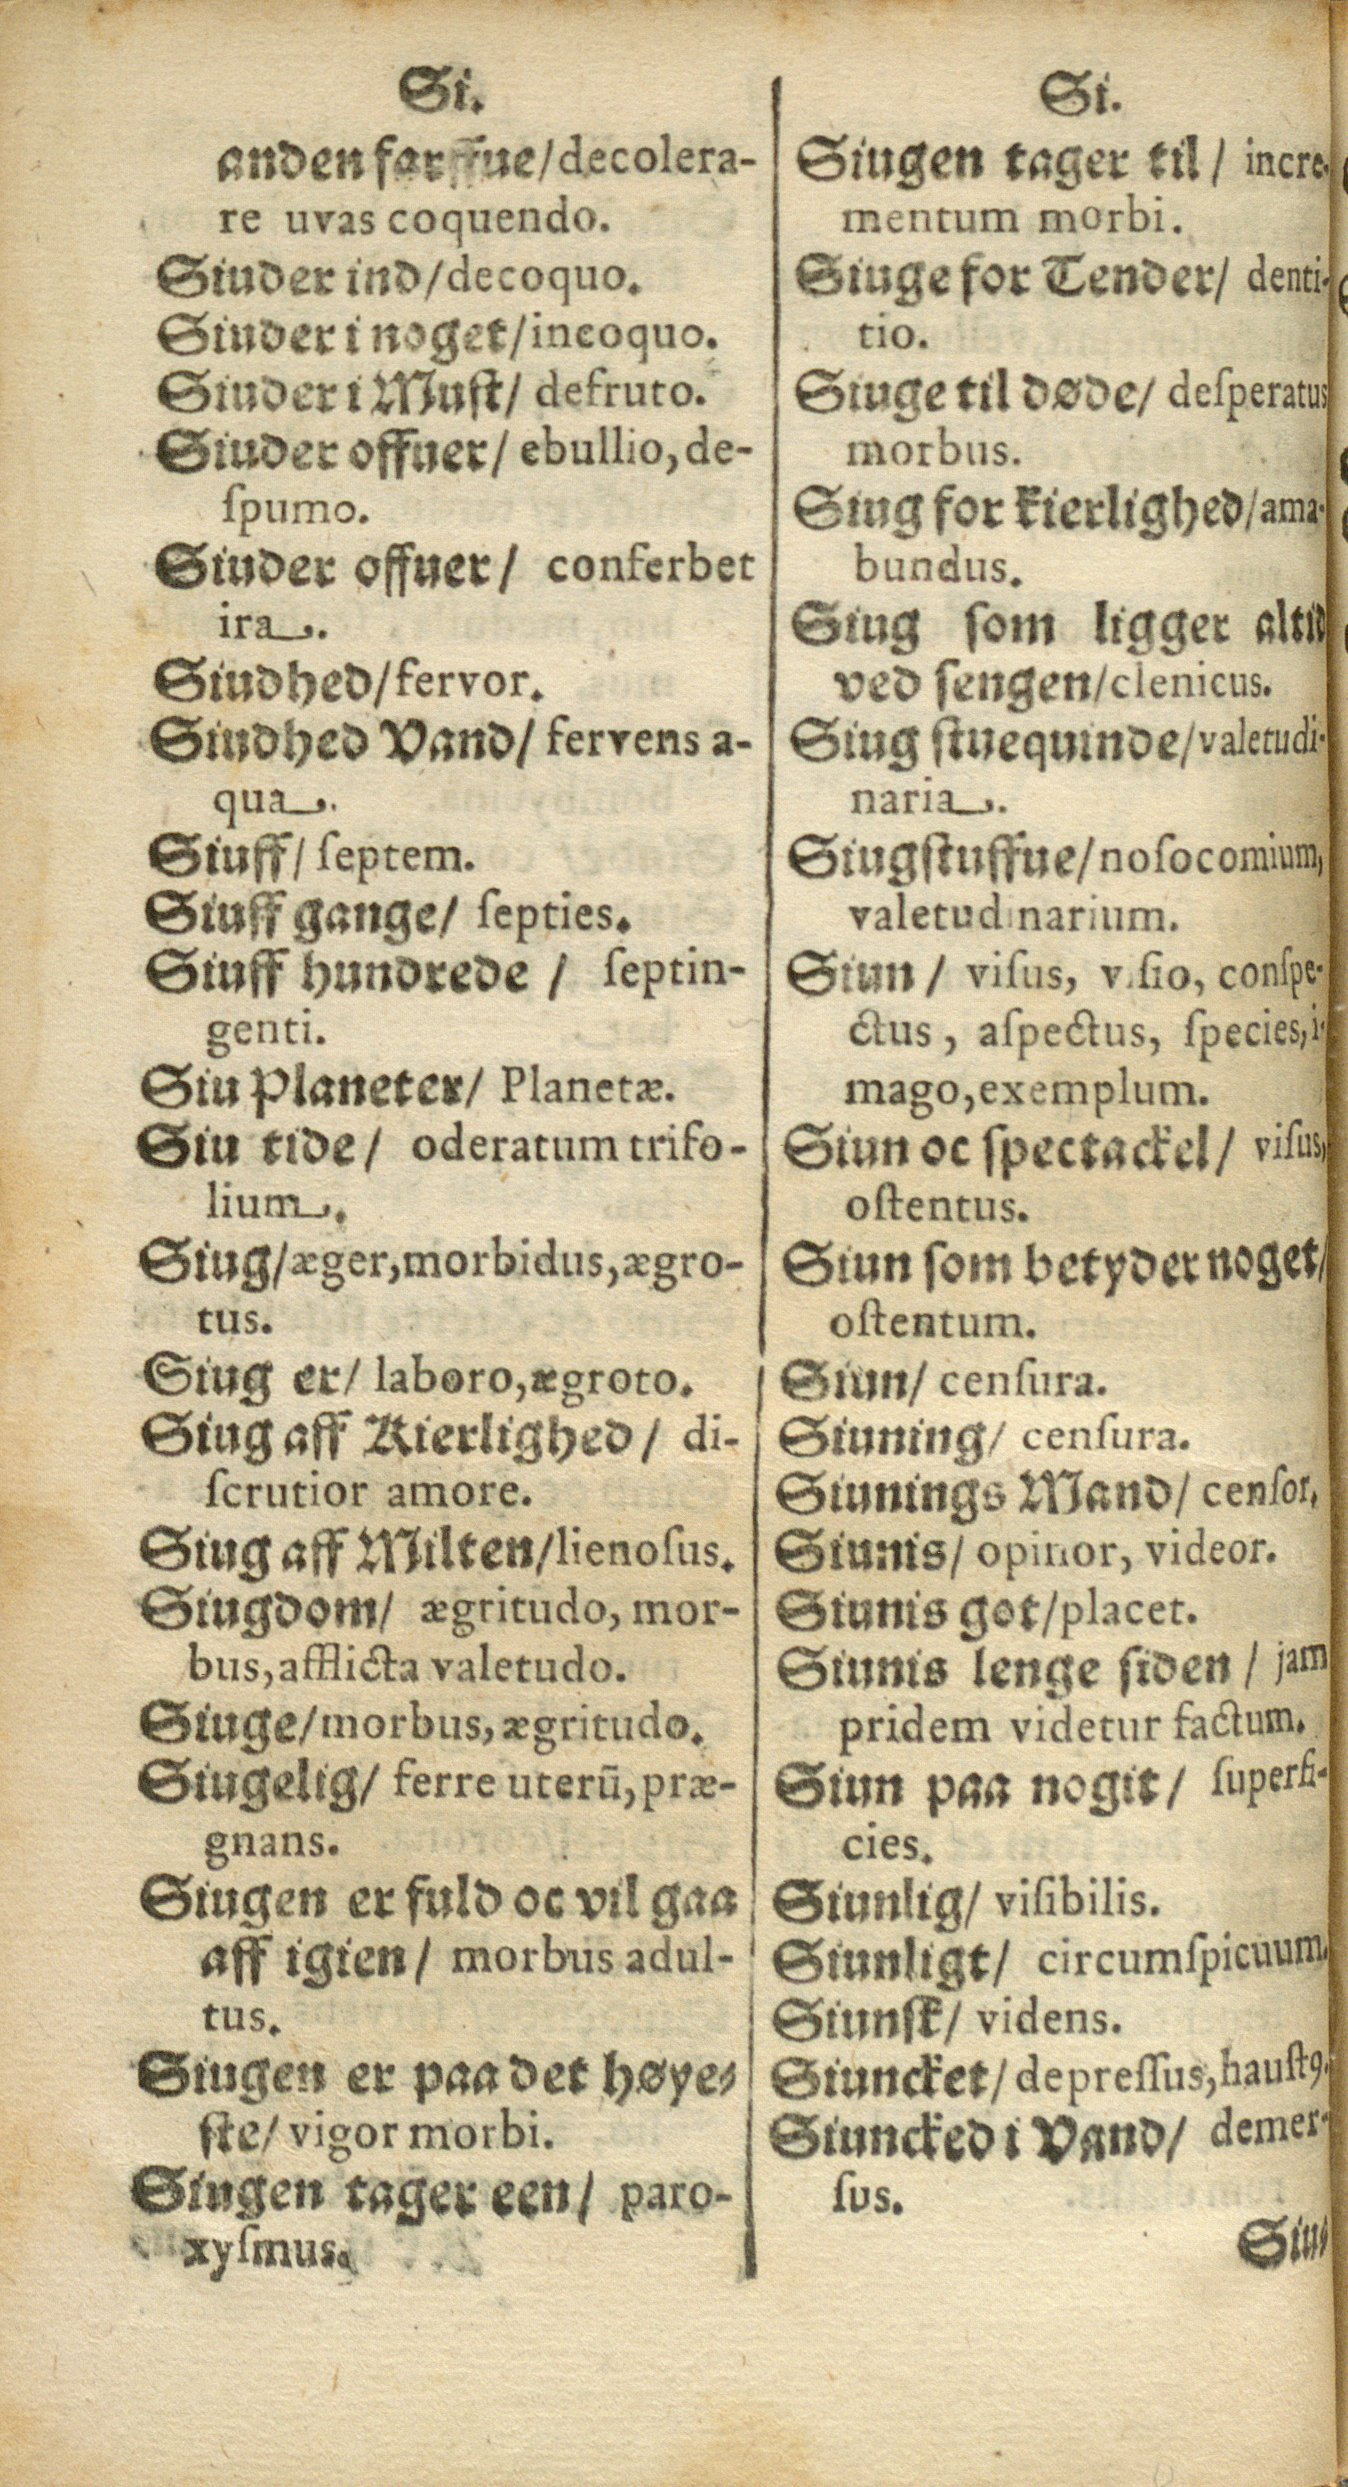 Si.
anden farffue/decolera-
re uvas coquendo.
Siuder ind/decoquo.
Siuder i noget/incoquo.
Siuder i Must/ defruto.
Siuder offuer/ ebullio, de-
ſpumo.
Siuder offuer/ conferbet
ira.
Siudhed/fervor.
Siudhed Vand/ fervens a-
qua.
Siuff/ ſeptem.
Siuff gange/ ſepties.
Siuff hundrede / ſeptin-
genti.
Siu Planeter/ Planetæ.
Siu tide/ oderatum trifo-
lium.
Siug/æger,morbidus,ægro-
tus.
Siug er/ laboro,ægroto.
Siug aff Kierlighed/ di-
ſcrutior amore.
Siug aff Milten/lienoſus.
Siugdom/ ægritudo, mor-
bus,afflicta valetudo.
Siuge/morbus,ægritudo.
Siugelig/ ferre uterū,præ-
gnans.
Siugen er fuld oc vil gaa
aff igien/ morbus adul-
tus.
Siugen er paa det høye-
ſte/ vigor morbi.
Siugen tager een/ paro-
xyſmus.
Si.
Siugen tager til/ incre-
mentum morbi.
Siuge for Tender/ denti-
tio.
Siuge til døde/ deſperatus
morbus.
Siug for kierlighed/ama-
bundus.
Siug ſom ligger altid
ved ſengen/clenicus.
Siug ſtuequinde/valetudi-
naria.
Siugſtuffue/noſocomium,
valetudinarium.
Siun/ viſus, viſio, conſpe-
ctus, aſpectus, ſpecies, i-
mago,exemplum.
Siun oc ſpectackel/ viſus,
oſtentus.
Siun ſom betyder noget/
oſtentum.
Siun/ cenſura.
Siuning/ cenſura.
Siunings Mand/ cenſor,
Siunis/ opinor, videor.
Siunis got/placet.
Siunis lenge ſiden / jam
pridem videtur factum.
Siun paa nogit/ ſuperfi-
cies.
Siunlig/ viſibilis.
Siunligt/ circumſpicuum.
Siunſk/ videns.
Siuncket/ depreſſus,hauſtꝰ.
Siuncked i Vand/ demer-
ſus.
Siu-